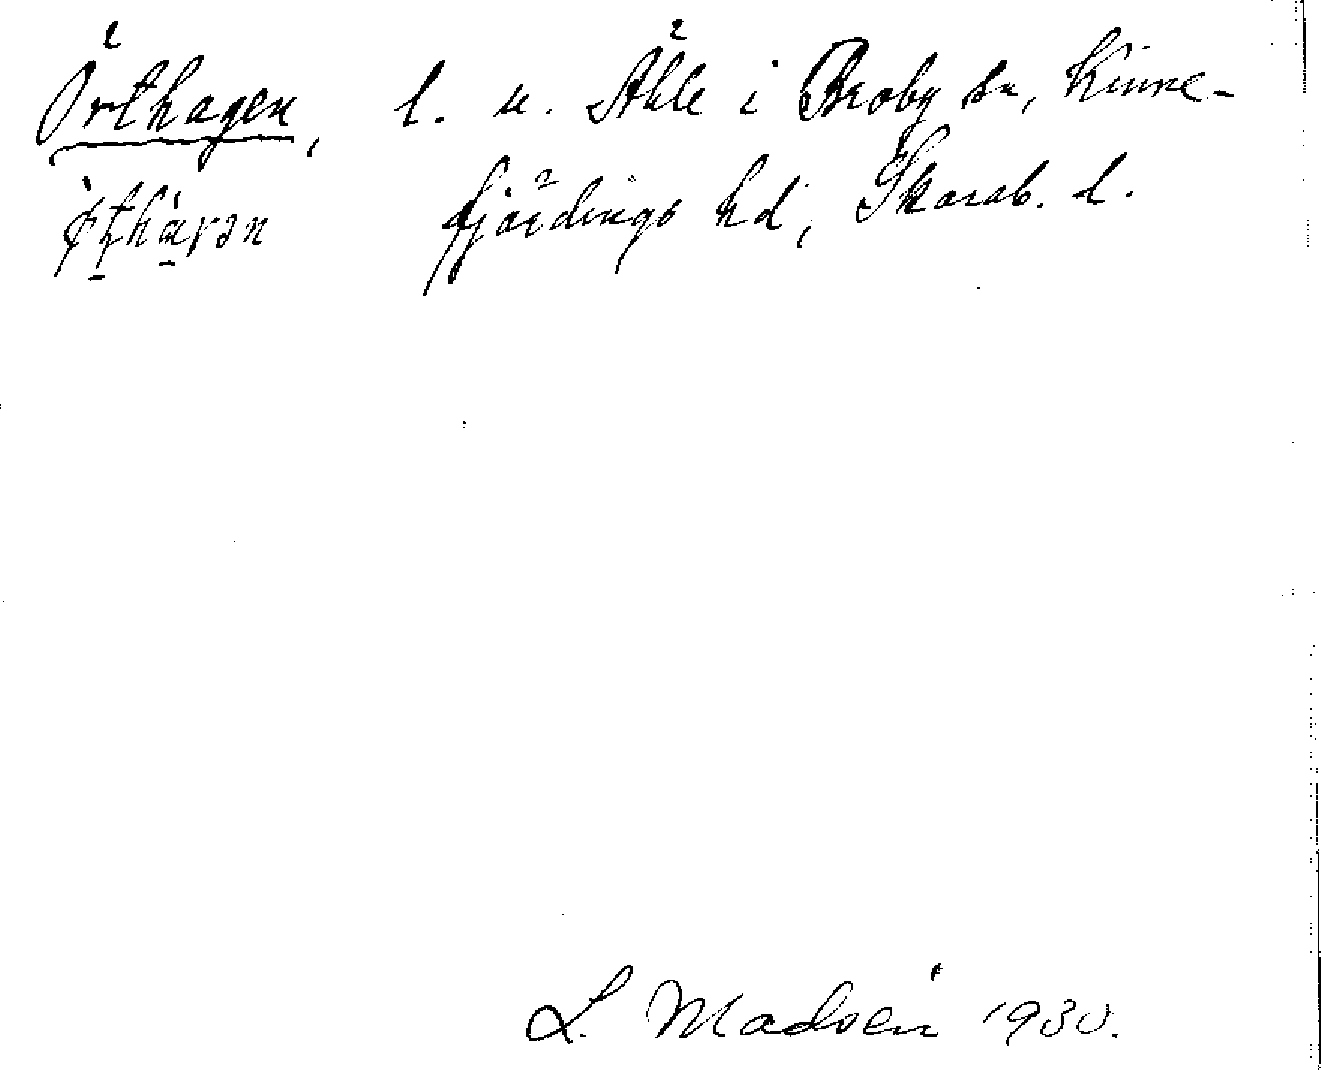 Örthagen, l. u. Åhle i Broby sn, Kinne-
fjärdings hd, Skarab. l.
L. Madsén 1930.